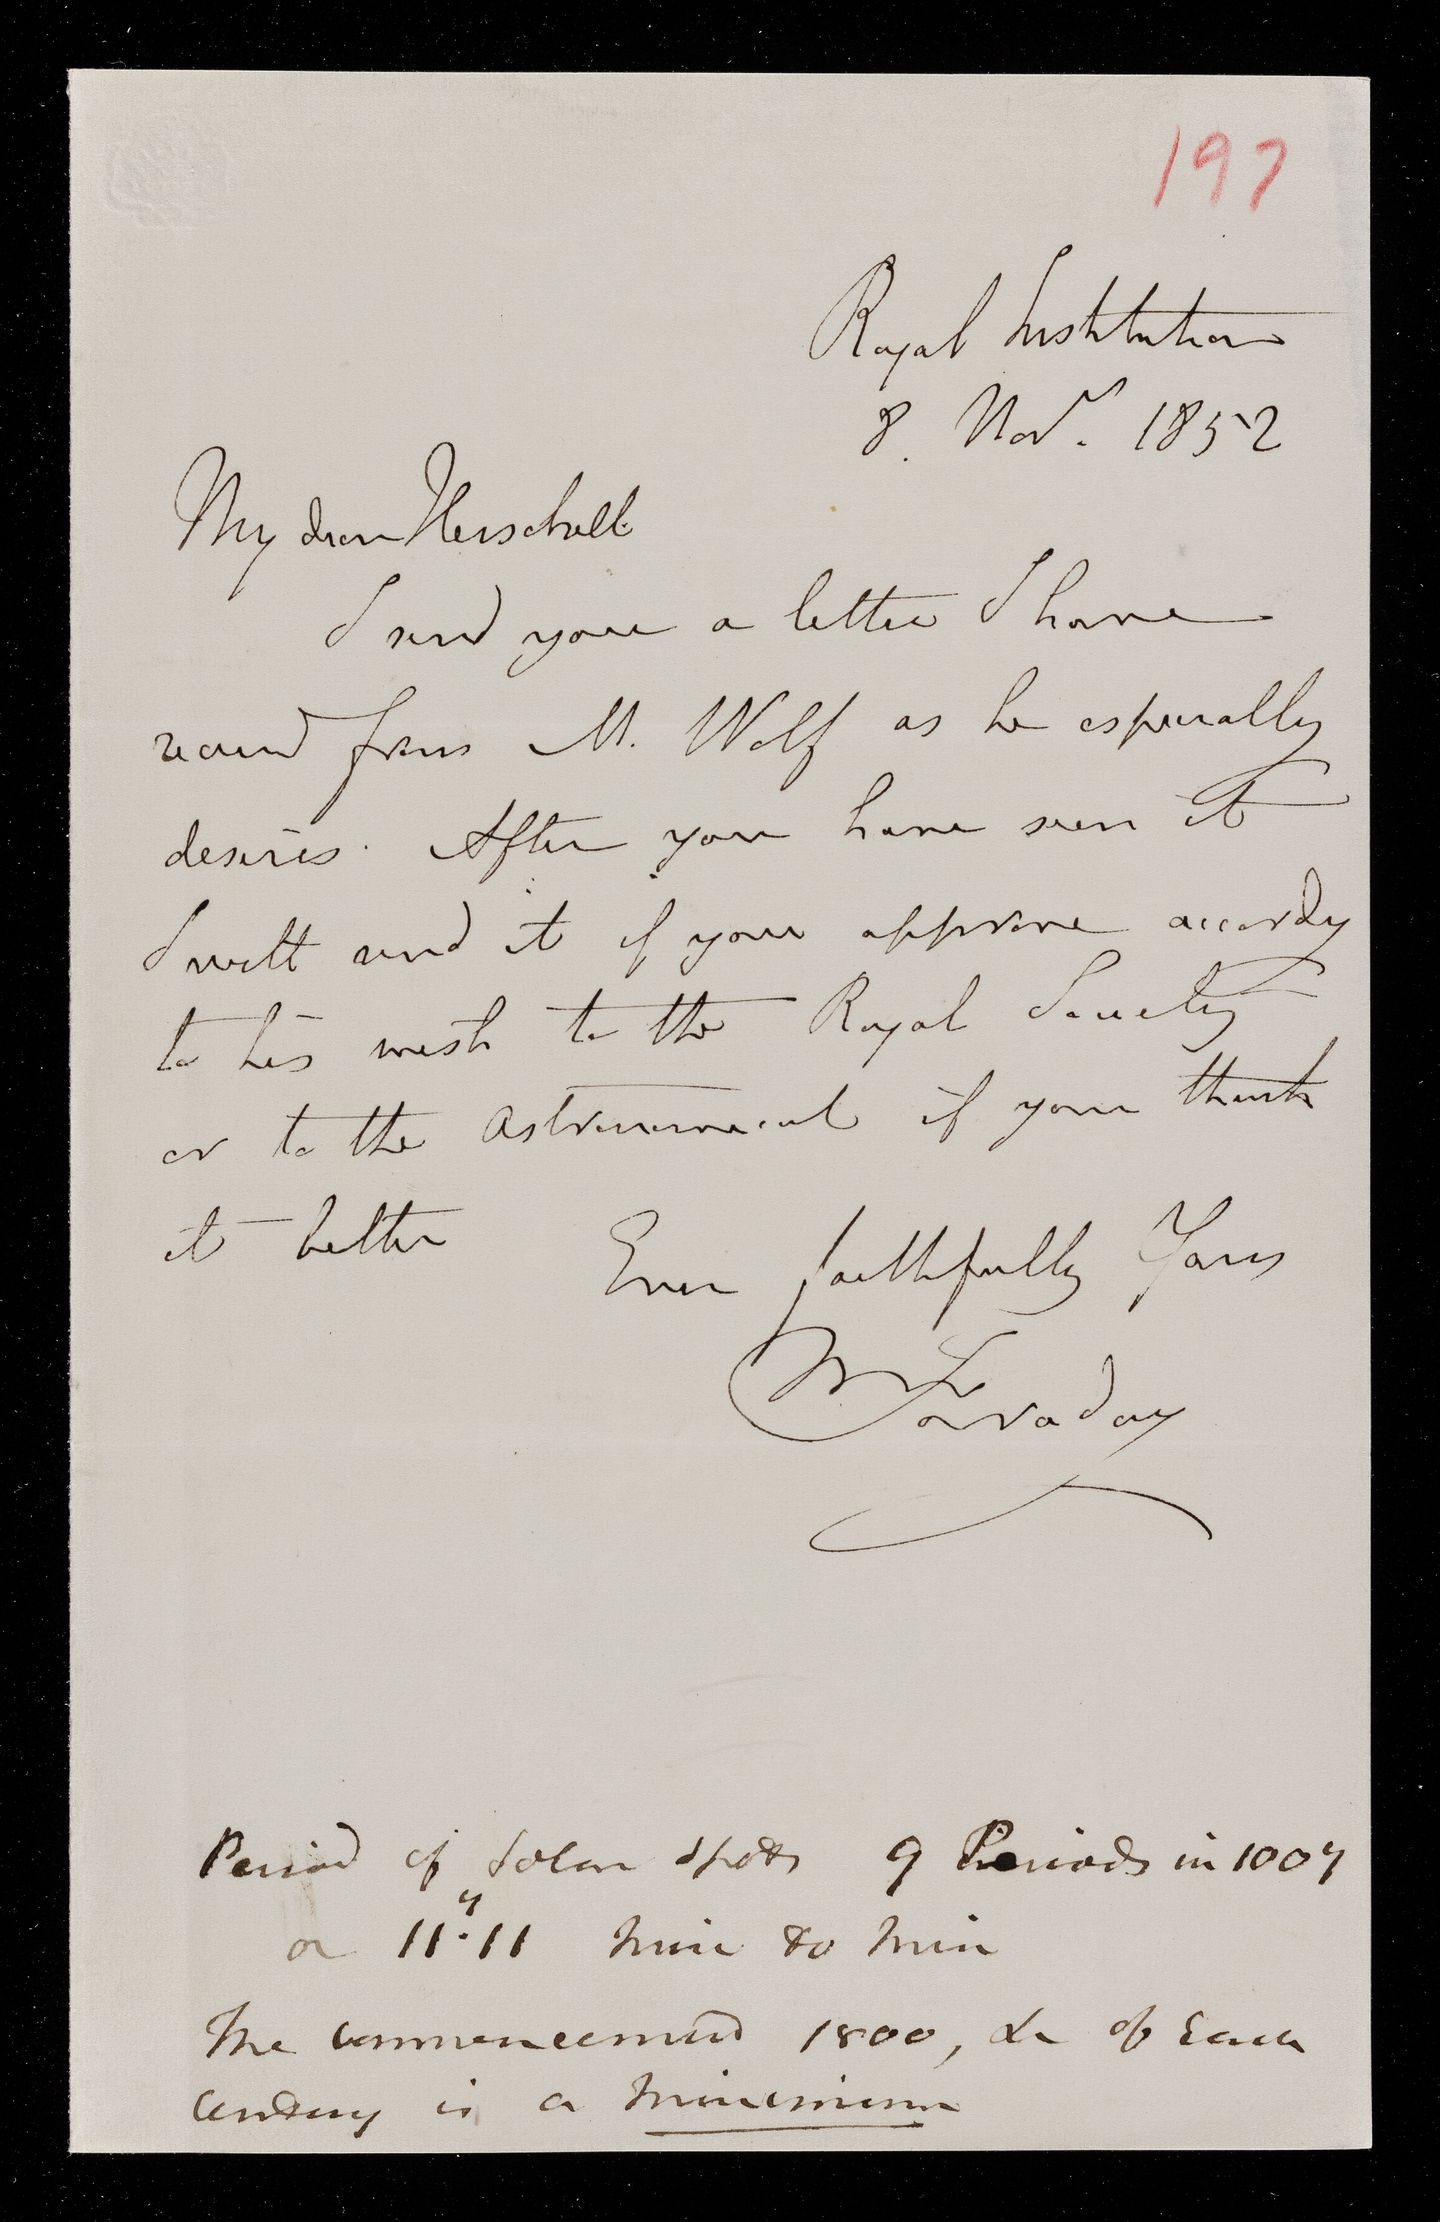 197
Royal Institution
8. Novr. 1852
My dear Herschell
I send you a letter I have
recevd from M. Wolf as he especially
desires. After you have seen it
I will send it if you approve accordg
to his wish to the Royal Society
or to the Astronomical if you think
it better
Ever faithfully Yours
M Faraday
Period of Solar Spots 9 Periods in 100y
or 11y.11 Min to Min
The commencement 1800, &c of each
Century is a Minimum